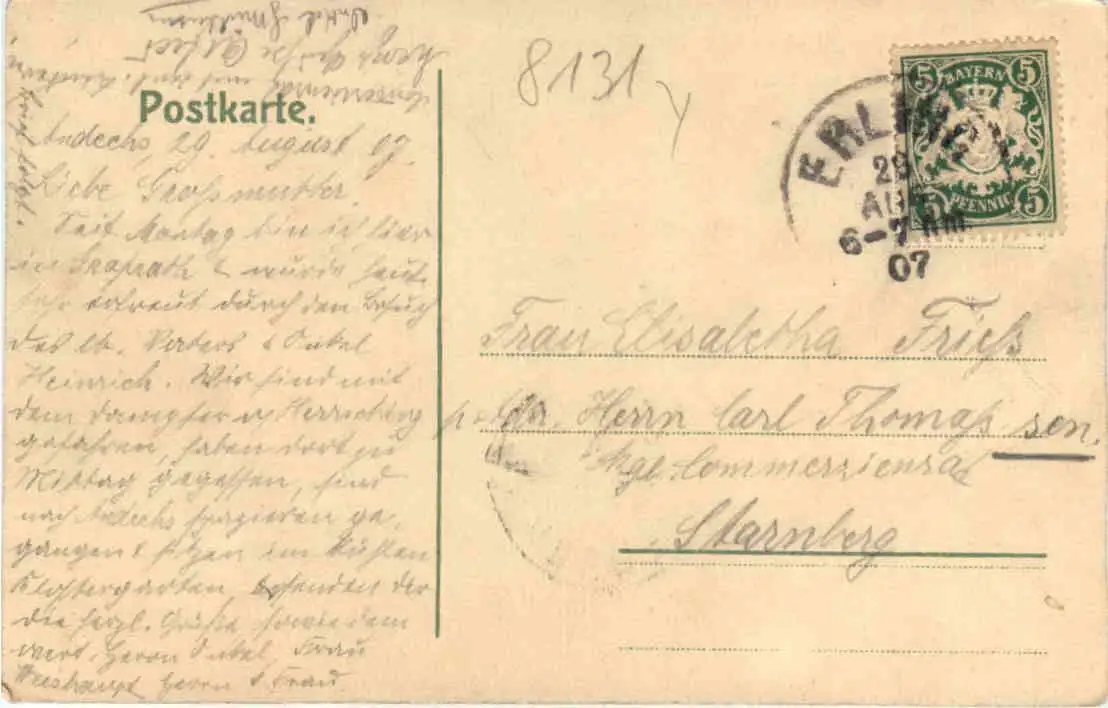 Postkarte.
Andechs, 29. August 07.
Liebe Großmutter.
Seit Montag bin ich hier
in & wurde heute
sehr erfreut durch den Besuch
des lb. Vaters & Onkel
Heinrich. Wir sind mit
dem Dampfer n/ Herrsching
gefahren, haben dort zu
Mittag gegessen, sind
nach Andechs spazieren ge-
gangen & sitzen im kühlen
Klostergarten, senden dir
die herzl. Grüße sowie dem
wert. Herrn Onkel, Frau
Weeshaupt Herrn & Frau
8131
BAYERN
5 5
5 5
PFENNIG
ERLING
29
AUG
6-7 NM.
07
Frau Elisabetha Frieß
p. Adr. Herrn Carl Thomaß sen.
Kgl. Commerzienrat
Starnberg